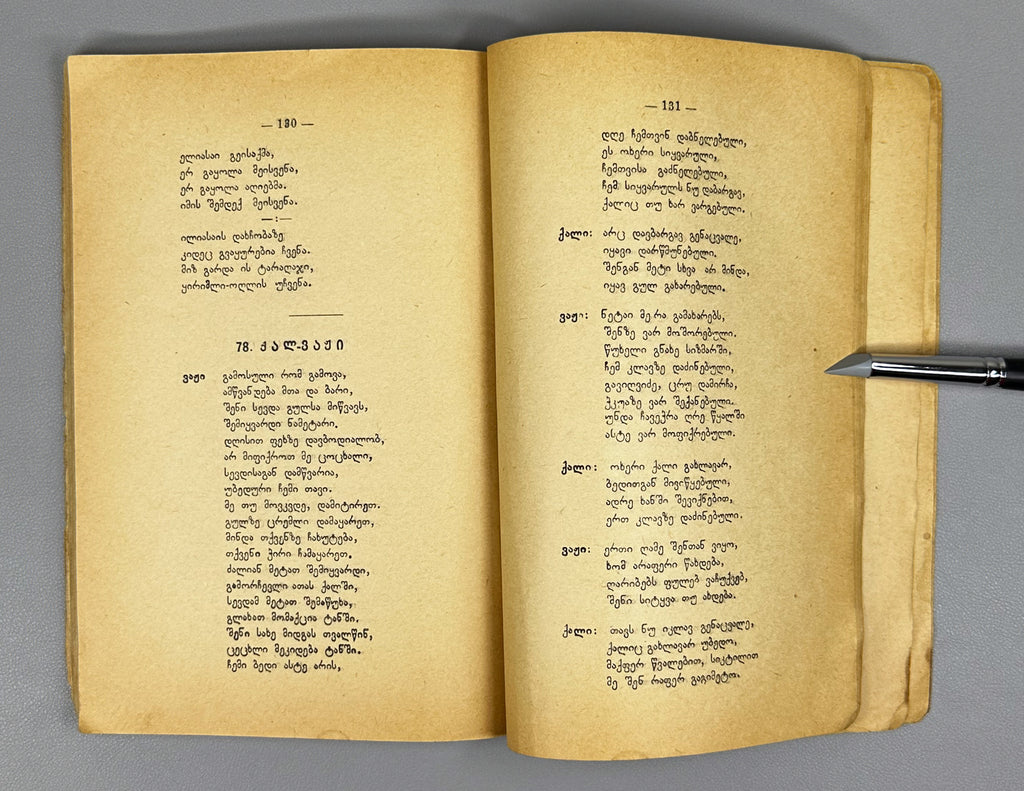 — 130 —
ელიასაი გეისაქმა,
ერ გაყოლა მეისვენა,
ერ გაყოლა აღიებმა.
იმის შემდექ მეისვენა.
— : —
ილიასაის დახჩობაზე
კიდეც გვაყურებია ჩვენა.
მიზ გარდა ის ტარაღაჯი,
ყირიმლი-ოღლის უჩვენა.
78. ქალ-ვაჟი
ვაჟი გამოსული რომ გამოვა,
ამწვანდება მთა და ბარი,
შენი სევდა გულსა მიწვავს,
შემიყვარდი ნამეტარი.
დღისით ფეხზე დავბოდიალობ,
არ მიფიქროთ მე ცოცხალი,
სევდისაგან დამწვარია,
უბედური ჩემი თავი.
მე თუ მოვკვდე, დამიტირეთ.
გულზე ცრემლი დამაყარეთ,
მინდა თქვენზე ჩახუტება,
თქვენი ჭირი ჩამაყარეთ.
ძალიან მეტათ შემიყვარდი,
გამორჩევლი ათას ქალში,
სევდამ მეტათ შემაწუხა,
გლახათ მომაქცია ტანში.
შენი სახე მიდგას თვალწინ,
ცეცხლი მეკიდება ტანში.
ჩემი ბედი ასტე არის,
— 131 —
დღე ჩემთვინ დაბნელებული,
ეს ოხერი სიყვარული,
ჩემთვისა გაძნელებული,
ჩემ სიყვარულს ნუ დაბარგავ,
ქალიც თუ ხარ ვარგებული.
ქალი: არც დავბარგავ გენაცვალე,
იყავი დარწმუნებული.
შენგან მეტი სხვა არ მინდა,
იყავ გულ გახარებული.
ვაჟი: ნეტაი მე რა გამახარებს,
შენზე ვარ მოშორებული.
წუხელი გნახე სიზმარში,
ჩემ კლავზე დაძინებული,
გავიღვიძე, ცრუ დამირჩა,
ჭკუაზე ვარ შექანებული.
უნდა ჩავექრა ღრე წყალში
ასტე ვარ მოფიქრებული.
ქალი: ოხერი ქალი გახლავარ,
ბედითგან მივიწყებული,
ადრე ხანში შევიქნებით,
ერთ კლავზე დაძინებული.
ვაჟი: ერთი ღამე შენთან ვიყო,
ხომ არაფერი წახდება,
ღარიბებს ფულებ ვაჩუქებ,
შენი სიტყვა თუ ახდება.
ქალი: თავს ნუ იკლავ გენაცვალე,
ქალიც გახლავარ უბედო,
მაქფერ წვალებით, სიკტილით
მე შენ რაფერ გაგიმეტო.